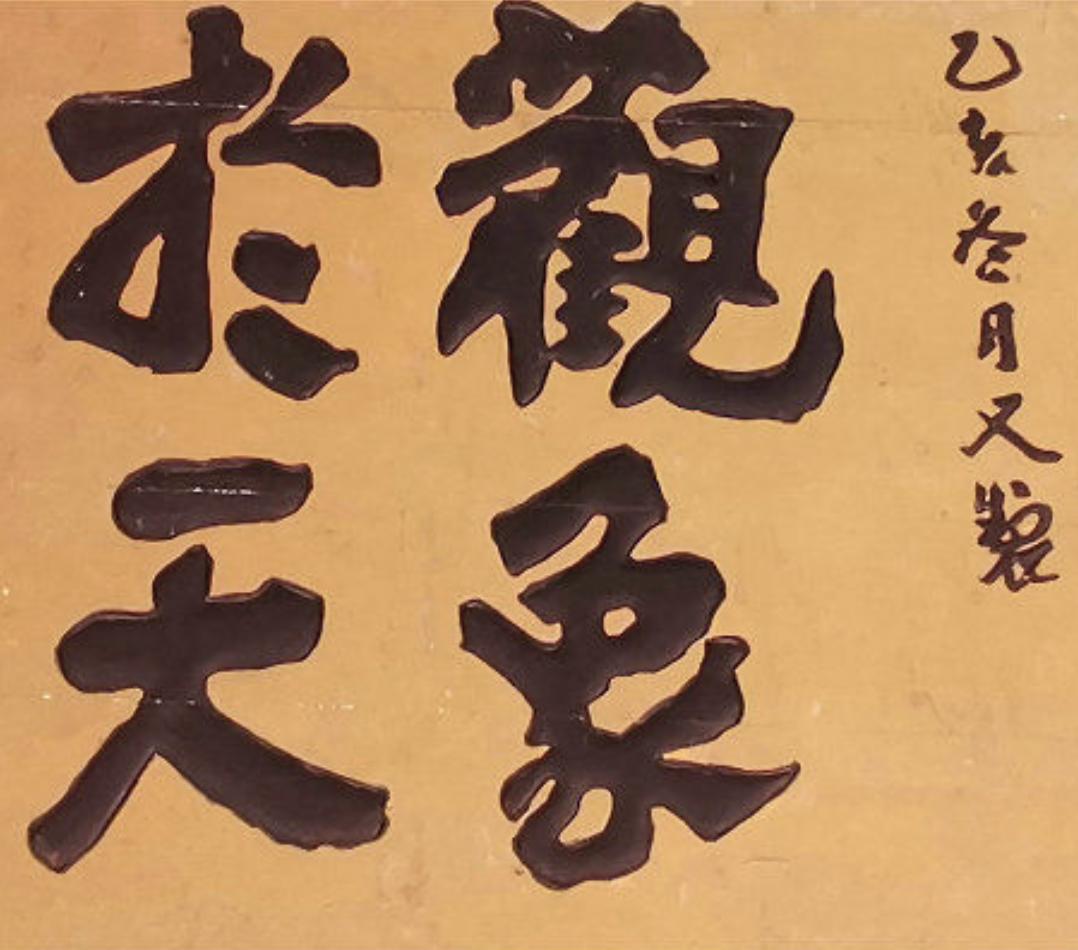 乙亥冬月又製
觀象
於天